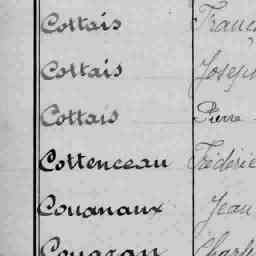 Cottais Franç
Cottais Joseph
Cottais Pierre
Cottenceau Frédéric
Couanaux Jean
Charl